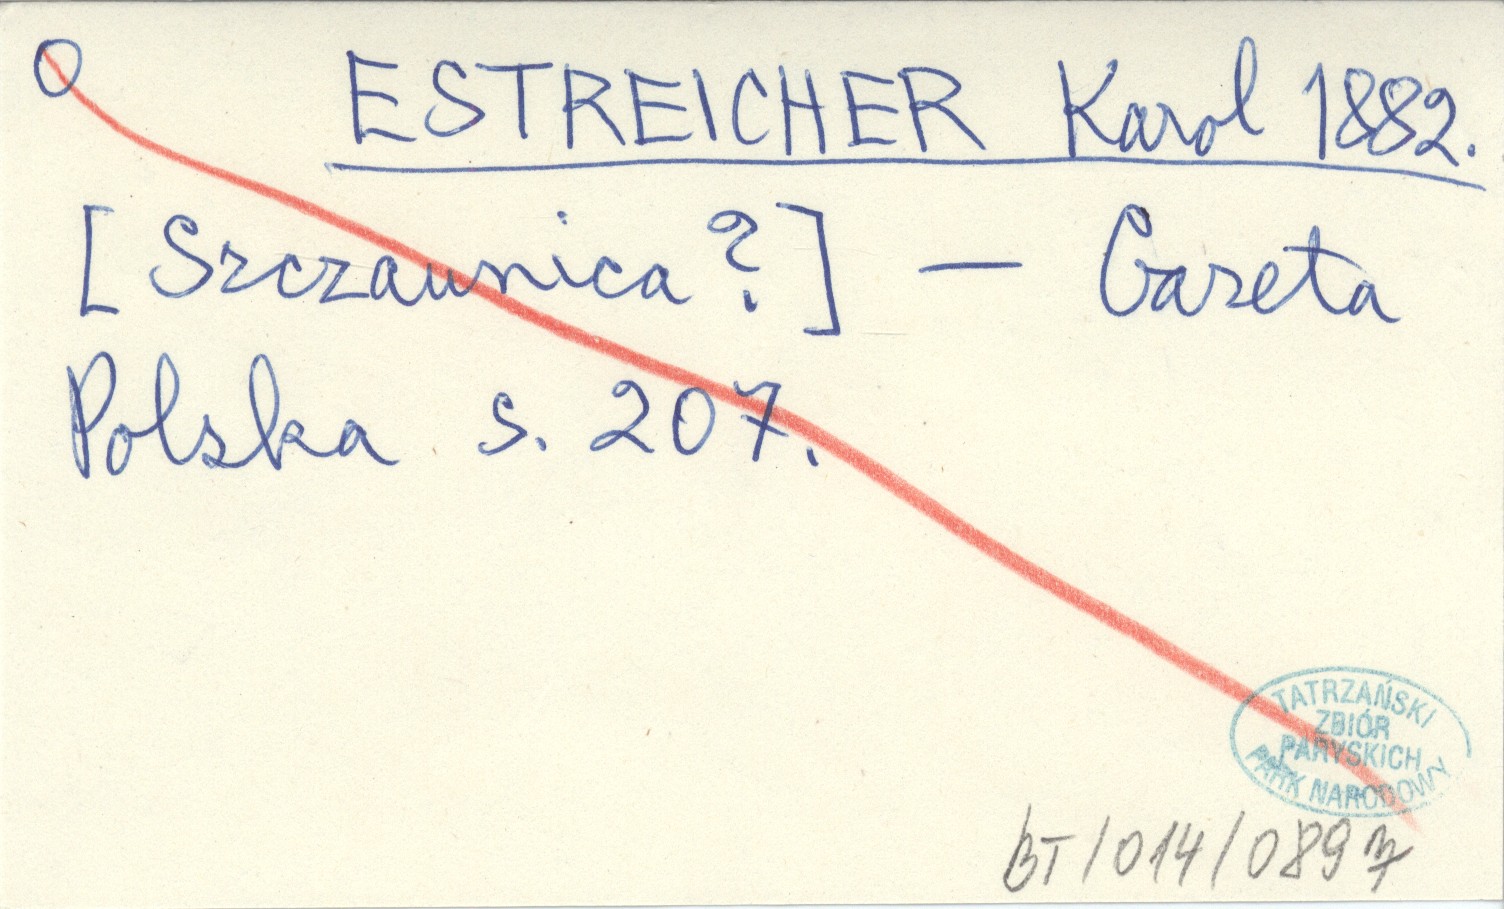 O ESTREICHER Karol 1882.
[Szczawnica?] — Gazeta
Polska s. 207.
TATRZAŃSKI
ZBIÓR
PARYSKICH
PARK NARODOWY
BT/014/0897